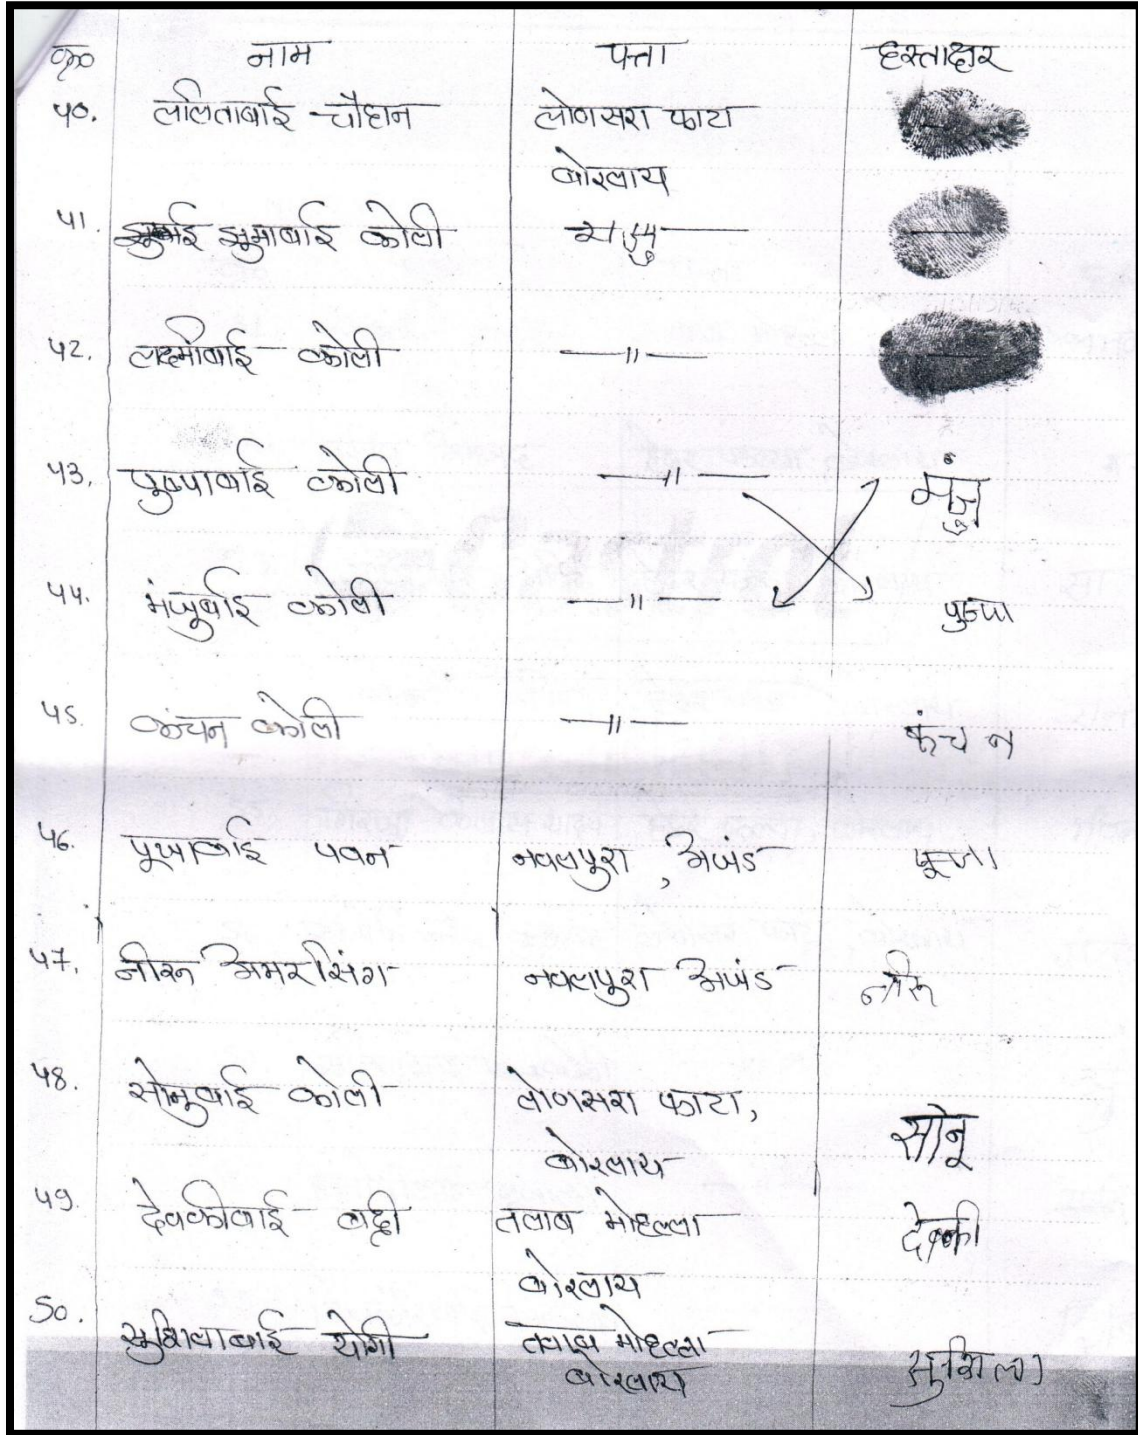 क्र० नाम पत्ता हस्ताक्षर
40. ललिताबाई चौहान लोणसरा फाटा
बोरलाय
41. झुमाबाई कोली
42. लक्ष्मीबाई कोली —॥—
43. पुष्पाबाई कोली —॥— मंजू
44. मंजुबाई कोली —॥— पुष्पा
45. कंचन कोली —॥— कंचन
46. पूजाबाई पवन नवलपुरा, अंजड पूजा
47. नीरू अमरसिंग नवलपुरा अंजड नीरू
48. सोनुबाई कोली लोणसरा फाटा,
बोरलाय सोनू
49. देवकीबाई तलाब मोहल्ला देवकी
बोरलाय
50. सुशिलाबाई योगी तलाब मोहल्ला
बोरलाय सुशिला